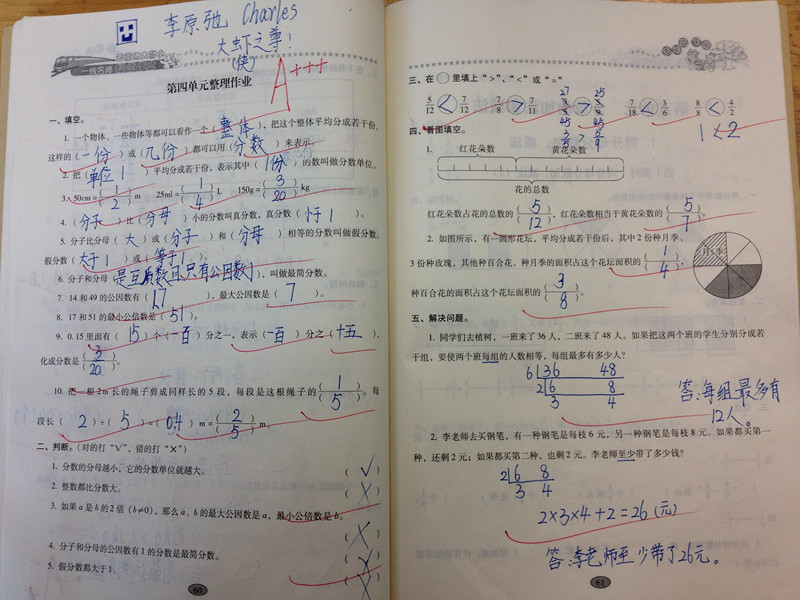 李原弛 Charles
大虾之尊!
(侠)
A+++
第四单元整理作业
一、填空。
1. 一个物体、一些物体等都可以看作一个(整体),把这个整体平均分成若干份,
这样的(一份)或(几份)都可以用(分数)来表示。
2. 把(单位1)平均分成若干份,表示其中(1份)的数叫做分数单位。
3. 50cm=(1)/(2) m 25ml=(1)/(4) L 150g=(3)/(20) kg
4. (分子)比(分母)小的分数叫真分数,真分数(小于1)。
5. 分子比分母(大)或(分子)和(分母)相等的分数叫做假分数,
假分数(大于1)或(等于1)。
6. 分子和分母(是互质数且只有公因数1),叫做最简分数。
7. 14和49的公因数有(1,7),最大公因数是(7)。
8. 17和51的最小公倍数是(51)。
9. 0.15里面有(15)个(一百)分之一,表示(一百)分之(十五),
化成分数是(3)/(20)。
10. 把一根2m长的绳子剪成同样长的5段,每段是这根绳子的(1)/(5)。每
段长(2)÷(5)=(0.4) m=(2)/(5) m。
二、判断。(对的打“√”,错的打“×”)
1. 分数的分母越小,它的分数单位就越大。 (√)
2. 整数都比分数大。 (×)
3. 如果a是b的2倍(b≠0),那么a、b的最大公因数是a,最小公倍数是b。
(×)
4. 分子和分母的公因数有1的分数是最简分数。 (×)
5. 假分数都大于1。 (×)
60
三、在○里填上“>”、“<”或“=”
27 25
5/12 < 7/12 7/8 > 7/11 7/18 < 3/6 8/8 < 4/2
45 45
3/5 > 5/9
1<2
四、看图填空。
1. 红花朵数 黄花朵数
花的总数
红花朵数占花的总数的(5)/(12),红花朵数相当于黄花朵数的(5)/(7)。
2. 如图所示,有一圆形花坛,平均分成若干份后,其中2份种月季、
3份种玫瑰,其他种百合花。种月季的面积占这个花坛面积的(1)/(4),
种百合花的面积占这个花坛面积的(3)/(8)。
月季
五、解决问题。
1. 同学们去植树,一班来了36人,二班来了48人。如果把这两个班的学生分别分成若
干组,要使两个班每组的人数相等,每组最多有多少人?
6 36 48
2 6 8
3 4
答:每组最多有
12人。
2. 李老师去买钢笔,有一种钢笔是每枝6元,另一种钢笔是每枝8元。如果都买第一
种,还剩2元;如果都买第二种,也剩2元。李老师至少带了多少钱?
2 6 8
3 4
2×3×4+2=26(元)
答:李老师至少带了26元。
61